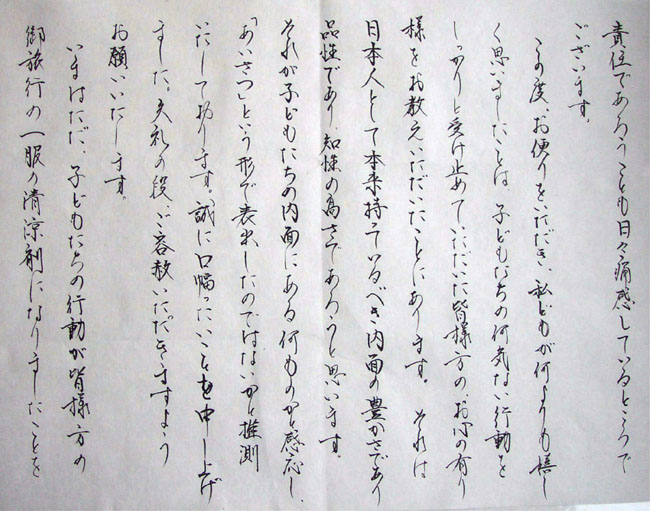 責任であろうことも日々痛感しているところで
ございます。
この度、お便りをいただき、私どもが何よりも嬉し
く思いましたことは、子どもたちの何気ない行動を
しっかりと受け止めていただいた皆様方の、お心の有り
様をお教えいただいたことにあります。それは
日本人として本来持っているべき内面の豊かさであり
品性であり、知性の高さであろうと思います。
それが子どもたちの内面にある何ものかと感応し、
「あいさつ」という形で表出したのではないかと推測
いたしております。誠に口幅ったいことを申し上げ
ました。失礼の段、ご容赦いただきますよう
お願いいたします。
いまはただ、子どもたちの行動が皆様方の
御旅行の一服の清涼剤になりましたことを